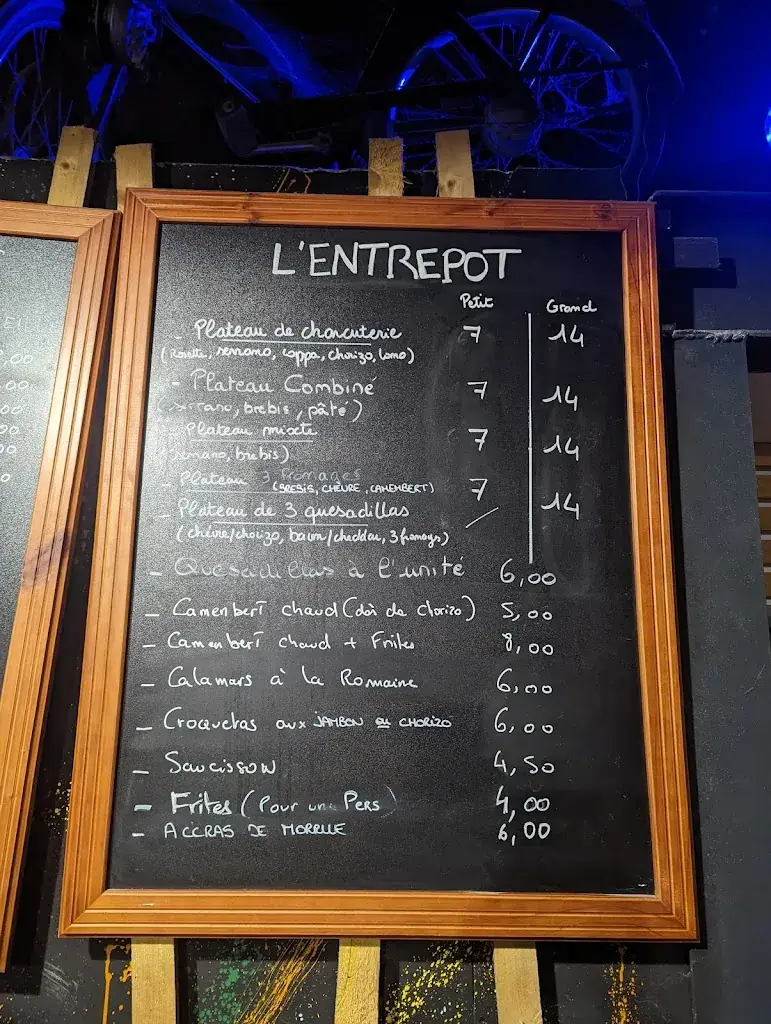 L'ENTREPOT
Petit Grand
- Plateau de charcuterie 7 14
(rosette, serrano, coppa, chorizo, lomo)
- Plateau Combiné 7 14
(serrano, brebis, pâté)
- Plateau mixte 7 14
(serrano, brebis)
- Plateau 3 fromages 7 14
(BREBIS, CHÈVRE, CAMEMBERT)
- Plateau de 3 quesadillas /
(chèvre/chorizo, bacon/cheddar, 3 fromages)
- Quesadillas à l'unité 6,00
- Camenbert chaud (dôs de chorizo) 5,00
- Camenbert chaud + Frites 8,00
- Calamars à la Romaine 6,00
- Croquetas aux JAMBON ou CHORIZO 6,00
- Saucisson 4,50
- Frites (Pour une Pers) 4,00
- ACCRAS DE MORRUE 6,00